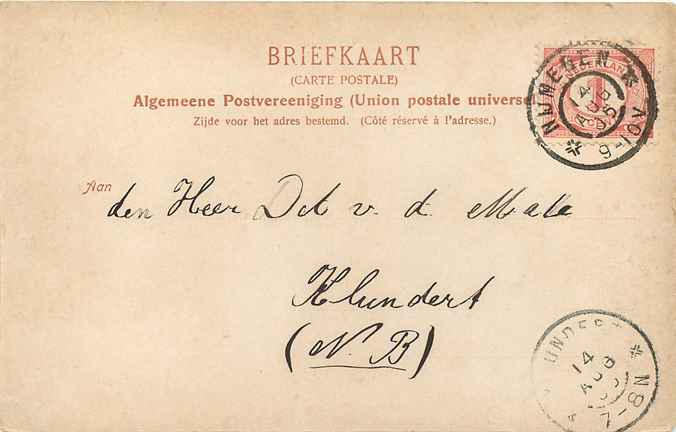 BRIEFKAART
(CARTE POSTALE)
Algemeene Postvereeniging (Union postale univers
Zijde voor het adres bestemd. (Côté réservé à l'adresse.)
NIJMEGEN
14
9-10V
Aan
den Heer Dct v. d. Made
Klundert
(N. B)
UNDERT
14
7-8N